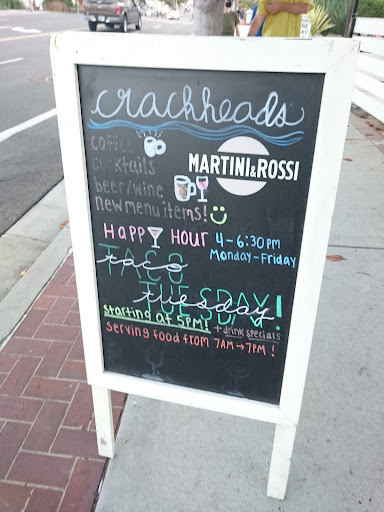 crackheads
coffee
cocktails
beer/wine
new menu items!
MARTINI & ROSSI
HAPPY HOUR 4-6:30PM
Monday-Friday
TACO
taco
TUESDAY!
tuesday
starting at 5PM! + drink specials
serving food from 7AM→7PM!